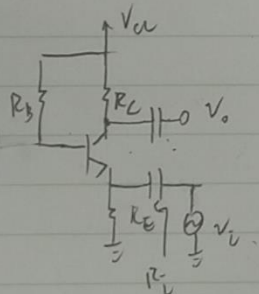 Vcc
RB
RC
Vo
RE
Vi
Ri